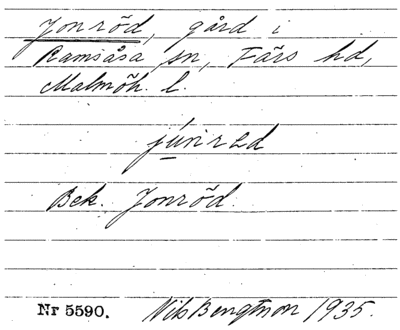 Jonröd, gård i
Ramsåsa sn, Färs hd,
Malmöh. l.
Bek. Jonröd.
Nr 5590. Nils Bengtsson 1935.